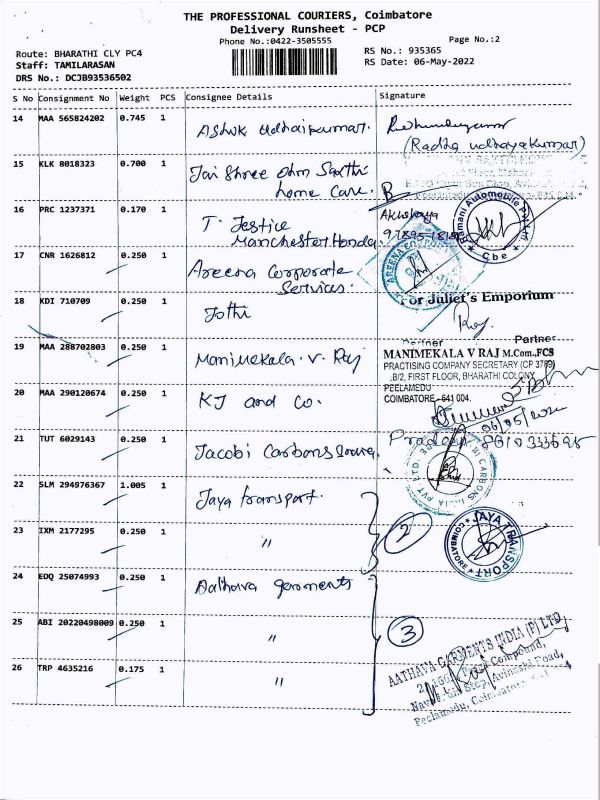 THE PROFESSIONAL COURIERS, Coimbatore
Delivery Runsheet - PCP
Phone No.:0422-3505555
Page No.:2
Route: BHARATHI CLY PC4
Staff: TAMILARASAN
DRS No.: DCJB93536502
RS No.: 935365
RS Date: 06-May-2022
S No Consignment No Weight PCS Consignee Details Signature
14 MAA 565824202 0.745 1 Ashok Udhaikumar.
(Radha udhayakumar)
15 KLK 8018323 0.700 1 Jai Shree Ohm Sakthi
home Care.
16 PRC 1237371 0.170 1 T. Jestice
Manchester Honda
Akhshaya
Ramani Automobile Pvt Ltd
Cbe
17 CNR 1626812 0.250 1 Areena Corporate
Services.
AREENA CORPORATE
18 KDI 710709 0.250 1 Jothi
For Juliet's Emporium
Raj
Partner
Partner
19 MAA 288702803 0.250 1 Manimekala. V. Raj
MANIMEKALA V RAJ M.Com.,FCS
PRACTISING COMPANY SECRETARY (CP 3769)
B/2, FIRST FLOOR, BHARATHI COLONY
PEELAMEDU
COIMBATORE - 641 004.
20 MAA 290120674 0.250 1 KJ and Co.
06/05/2022
21 TUT 6029143 0.250 1 Jacobi Carbons
Pradeep
JACOBI CARBONS INDIA PVT. LTD.
22 SLM 294976367 1.005 1 Jaya transport.
23 IXM 2177295 0.250 1 "
2
JAYA TRANSPORT
COIMBATORE
24 EDQ 25074993 0.250 1 Aathava garments
25 ABI 20220498009 0.250 1 "
3
26 TRP 4635216 0.175 1 "
AATHAVA GARMENTS INDIA (P) LTD
Compound,
Avinashi Road,
Peelamedu, Coimbatore